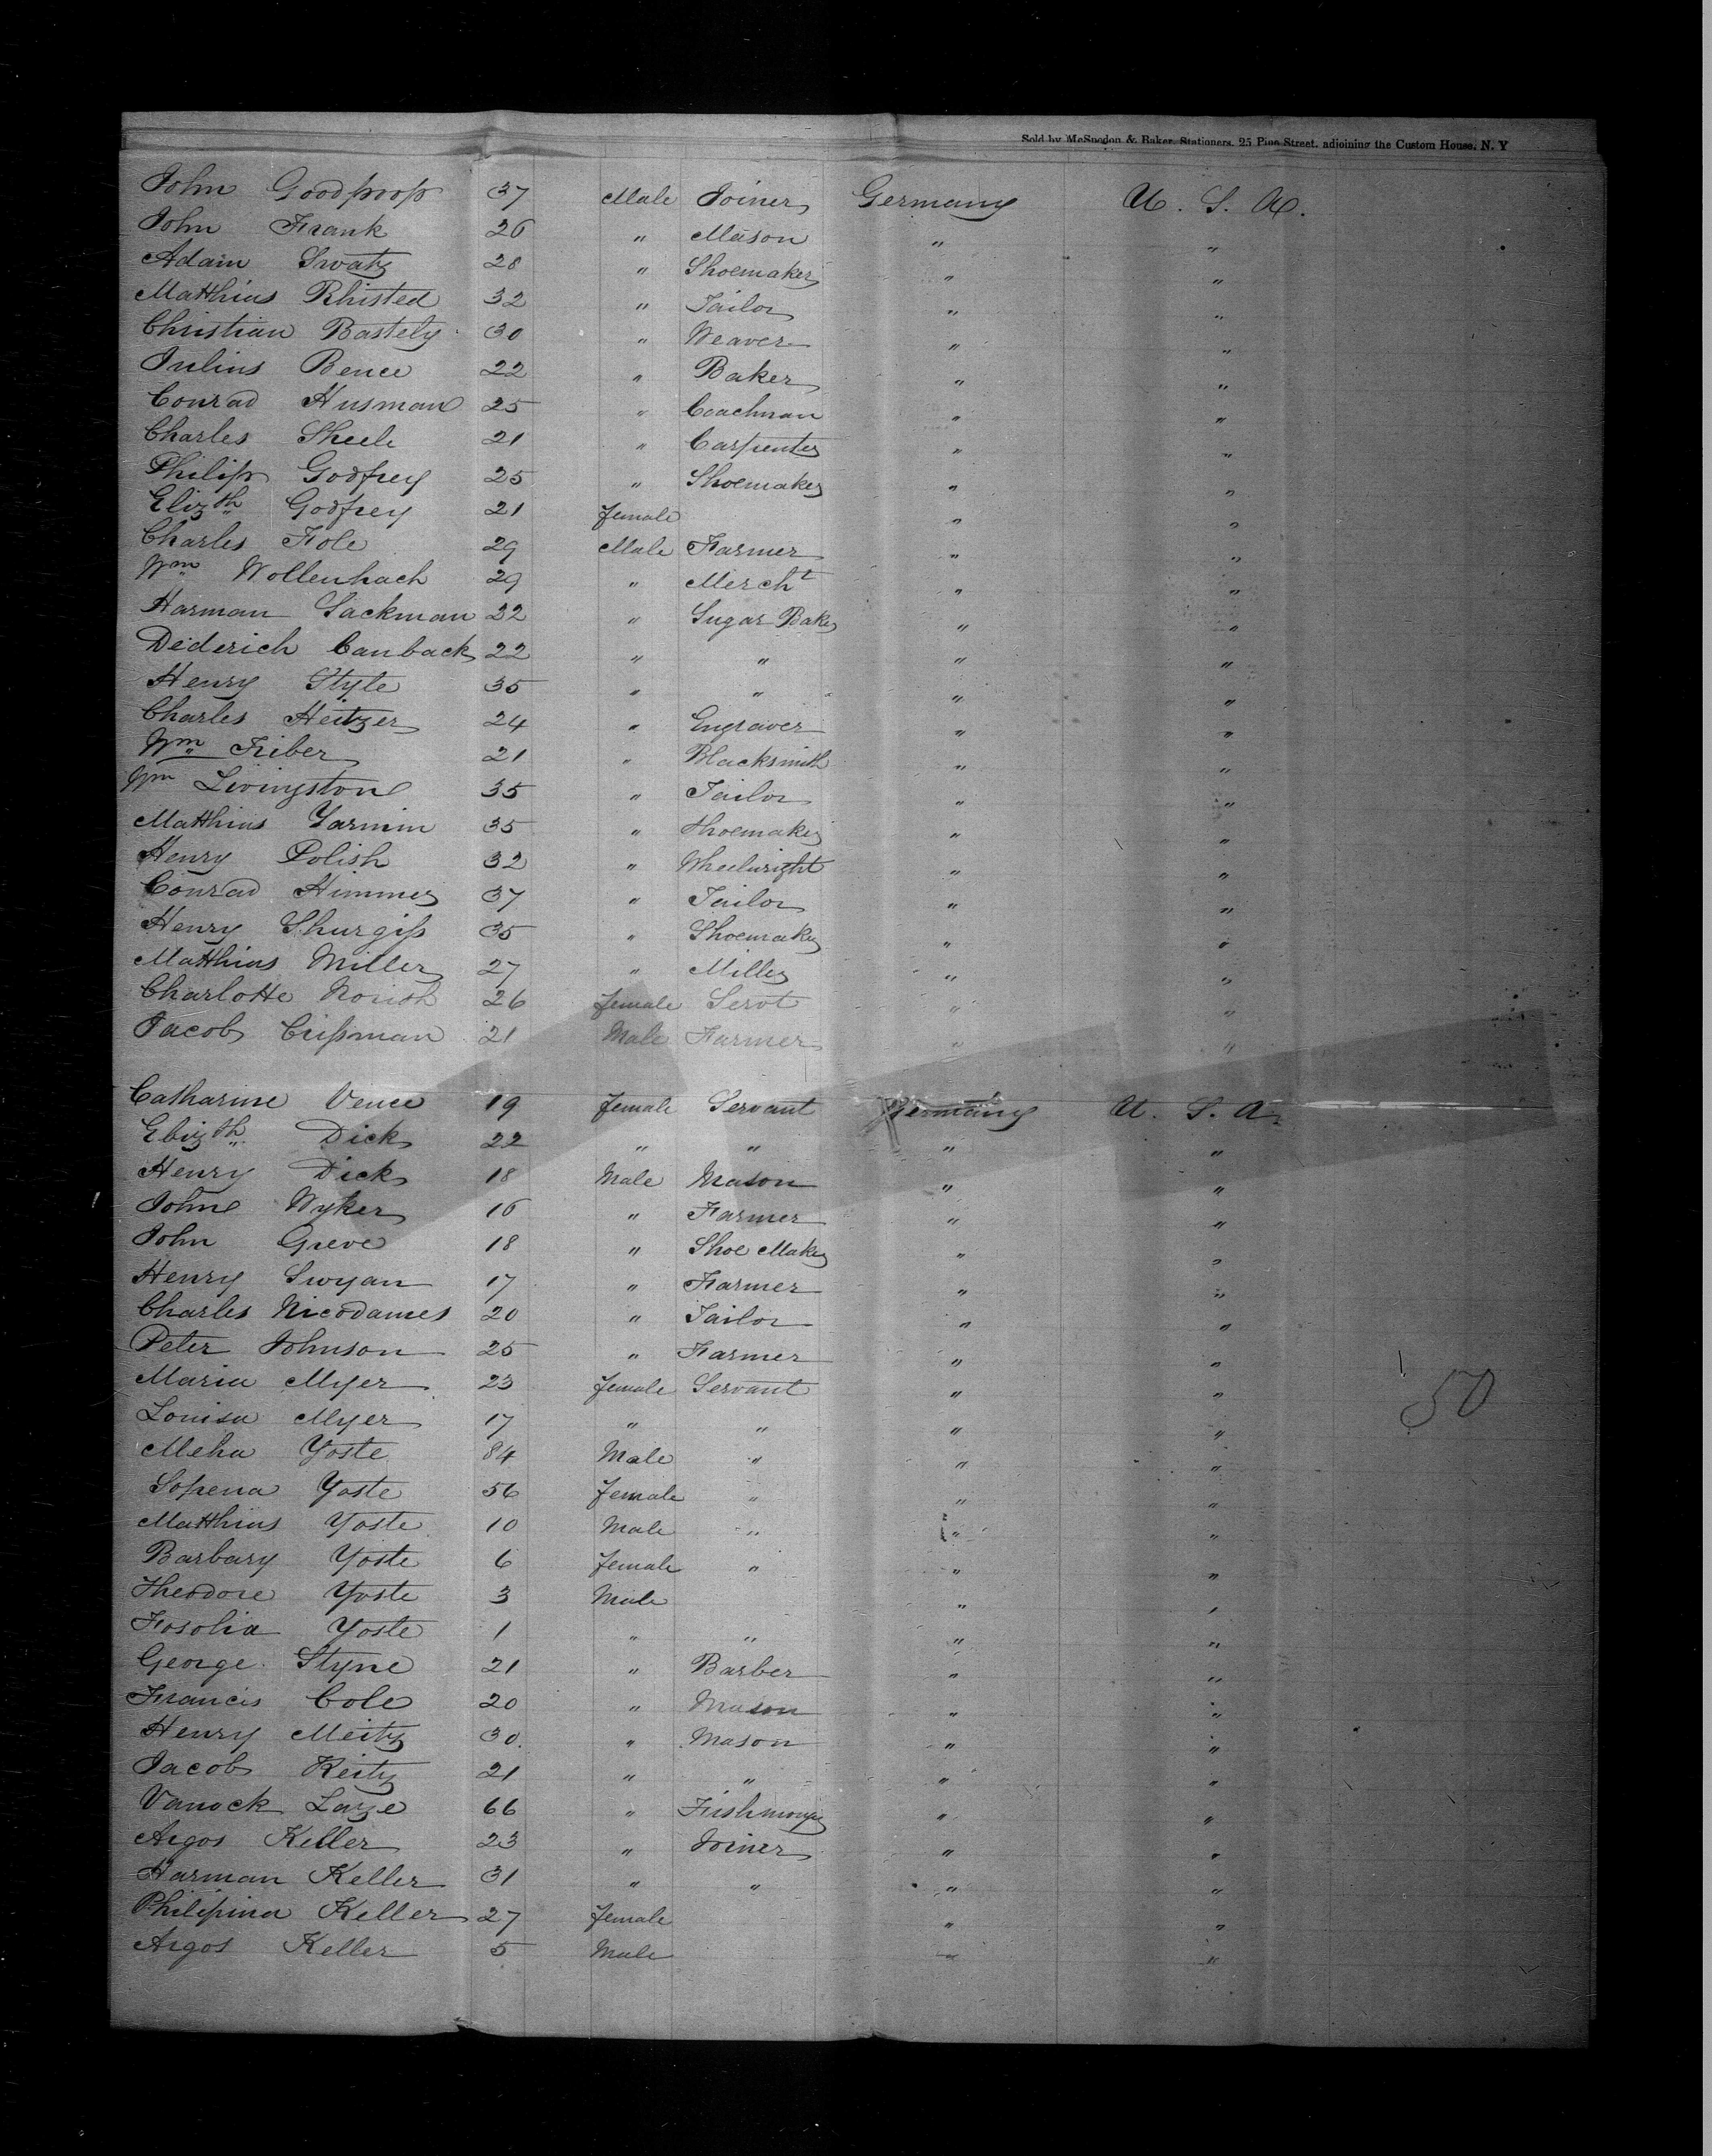 Sold by McSpedon & Baker, Stationers, 25 Pine Street, adjoining the Custom House, N. Y
John Goodproof 37 Male Joiner Germany U. S. A.
John Frank 26 " Mason " "
Adam Swatz 28 " Shoemaker " "
Matthias Rhisted 32 " Tailor " "
Christian Bastely 30 " Weaver " "
Julius Bence 22 " Baker " "
Conrad Husman 25 " Coachman " "
Charles Sheele 21 " Carpenter " "
Philip Godfrey 25 " Shoemaker " "
Elizth Godfrey 21 female " "
Charles Fole 29 Male Farmer " "
Wm Wollenhach 29 " Mercht " "
Harman Sackman 32 " Sugar Baker " "
Dederich Canback 22 " " " "
Henry Style 35 " " " "
Charles Heitzer 24 " Engraver " "
Wm Fiber 21 " Blacksmith " "
Wm Livingston 35 " Tailor " "
Matthias Yarmin 35 " Shoemaker " "
Henry Polish 32 " Wheelwright " "
Conrad Himmer 37 " Tailor " "
Henry Shurgiss 35 " Shoemaker " "
Matthias Miller 27 " Miller " "
Charlotte Norish 26 female Servt " "
Jacob Crissman 21 Male Farmer " "
Catharine Vence 19 female Servant Germany U. S. A.
Elizth Dick 22 " " " "
Henry Dick 18 Male Mason " "
John Wyker 16 " Farmer " "
John Greve 18 " Shoe Maker " "
Henry Swyan 17 " Farmer " "
Charles Nicodames 20 " Tailor " "
Peter Johnson 25 " Farmer " "
Maria Myer 23 female Servant " "
Louisa Myer 17 " " " "
50
Meha Yoste 84 Male " " "
Sopena Yoste 56 female " " "
Matthias Yoste 10 Male " " "
Barbary Yoste 6 female " " "
Theodore Yoste 3 Male " "
Fosolia Yoste 1 " " " "
George Styne 21 " Barber " "
Francis Cole 20 " Mason " "
Henry Meitz 30 " Mason " "
Jacob Reitz 21 " " " "
Vanock Larze 66 " Fishmonger " "
Argos Keller 23 " Joiner " "
Harman Keller 31 " " " "
Philipina Keller 27 female " "
Argos Keller 5 Male " "